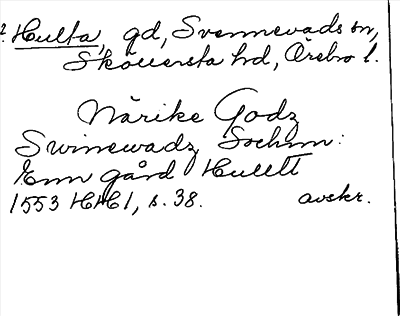 2. Hulta, gd, Svennevads sn,
Sköllersta hd, Örebro l.
Närike Godz
Swinewadz Sochnn:
Enn gård Hullt
1553 HH1, s. 38. avskr.